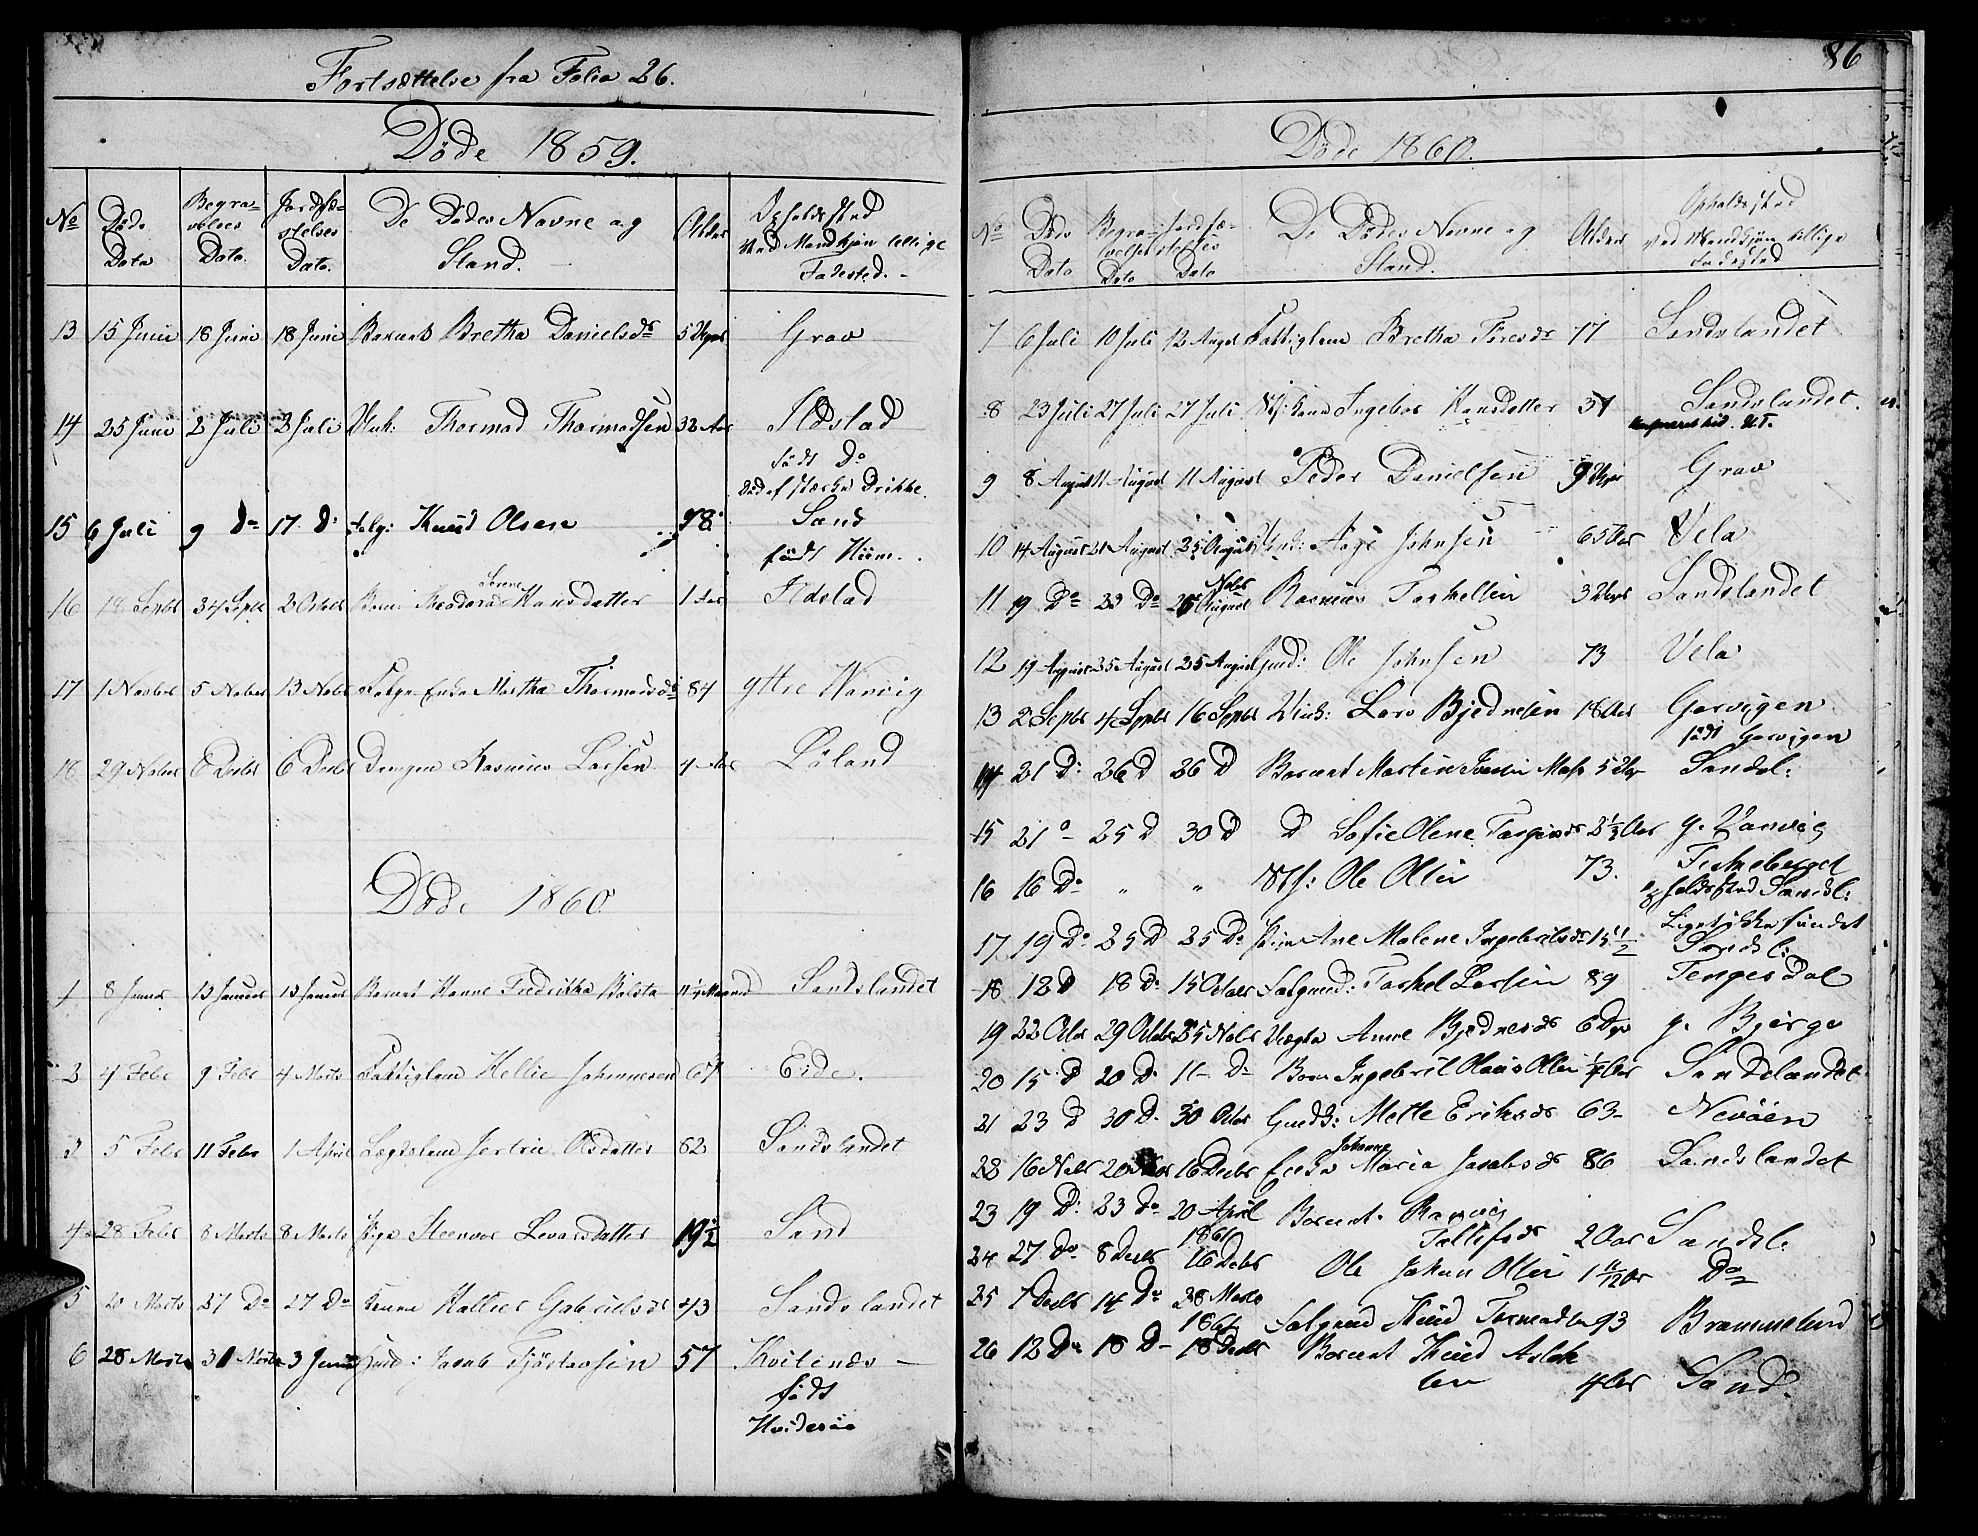 Fortsættelse fra Folio 26.
Døde 1859.
No Døds Dato Begravelses Dato. Jordfæstelses Dato. De Dødes Navne og Stand. Alder Opholdssted
Ved Mandkjøn tillige Fødested.
13 15 Juni 18 Juni 18 Juni Barnet Bretha Danielsdr 5 Uger Grav
14 25 Juni 2 Juli 2 Juli Unk: Thormod Thormodsen 32 Aar Ildstad
født Do
Død af stærke Drikke.
15 6 Juli 9 Do 17 Do Knud Olsen 78 Sand
født Hiim.
16 18 Septbr 24 Septb 2 Octob Barn Serene Hansdatter 1 Aar Ildstad
17 1 Novbr 5 Novbr 13 Novbr Enke Martha Thormodsdr 84 yttre Warvig
18 29 Novbr 6 Decbr 6 Decbr Drengen Rasmus Larsen 4 Aar Øland
Døde 1860
1 8 Januar 13 Januar 13 Januar Barnet Hanne Fredrikka Maaned Sandslandet
2 4 Febr 9 Febr 4 Marts Fattiglem Hellie Johannesen 67 Eide.
3 5 Febr 11 Febr 1 April Lægdslem Jertru Olsdatter 62 Sandslandet
4 28 Febr 8 Marts 8 Marts Pige Steenvor Levarsdatter 19½ Sand
5 20 Marts 27 Do 27 Do Kone Gabrielsdr 43 Sandslandet
6 28 Marts 31 Marts 3 Juni Gmd: Jacob Tjøstavsen 57 Kvitenæs
født
Hviderøe
86
Døde 1860.
No Døds Dato Begravelses Dato Jordfæstelses Dato De Dødes Navne og Stand. Alder Opholdssted
ved Mandkjøn tillige Fødested
7 6 Juli 10 Juli 12 Augst Fattiglem Bretha Toresdr 77 Sandslandet
8 23 Juli 27 Juli 27 Juli Kone Ingebor Hansdatter 37 Sandslandet.
9 8 August 11 August 11 August Peder Danielsen 9 Uger Grav
10 14 August 21 August 25 August Gmd: Aage Johnsen 65 Aar Vela
11 19 Do 23 Do Novbr Rasmus Torkelsen 3 Uger Sandslandet
12 19 August 25 August 25 August Gmd: Ole Johnsen 73 Vela
13 2 Septbr 4 Septbr 16 Septbr Unk: Lars Bjednesen 18 Aar Garvigen
født Garvigen
14 21 Do 26 D 26 D Barnet Martin 5 Uger Sandsl:
15 21 25 D 30 D D Sofie Olene 2⅓ Aar y. Varvig
16 16 Do " " Ole Olsen 73.
Opholdssted Sandsl:
Liget ikke fundet
17 19 Do 25 D 25 Do Pige Ane Malene Ingebritsdr 15½ Sandsl:
18 12 D 18 Do 15 Octobr Torkel Larsen 89 Tengesdal
19 22 Octbr 29 Octbr 25 Novbr Anne Bjednesdr 6 Dage y. Bjerge
20 15 D 20 D. 11 D Barn Ingebrit Olaus Olsen ¼ Aar Sandslandet
21 23 D 30 D. 30 Octbr Gmdk: Mette Eriksdr 63 Nevøen
22 16 Novbr 20 16 Decbr Enke Johanne Maria Jacobsdr 86 Sandslandet
23 19 D. 23 Do 20 April 1861 Barnet Ranveig Tollefsdr 2 Aar Sandsl:
24 27 Do 8 Decbr 16 Decbr Ole Johan Olsen 1 11/12 Aar Do
25 7 Decbr 14 Do 28 Marts 1861 Knud Tormodsen 93 Brommeland
26 12 Do 18 D 18 Decbr Barnet Knud Aslaksen 4 Aar Sand.